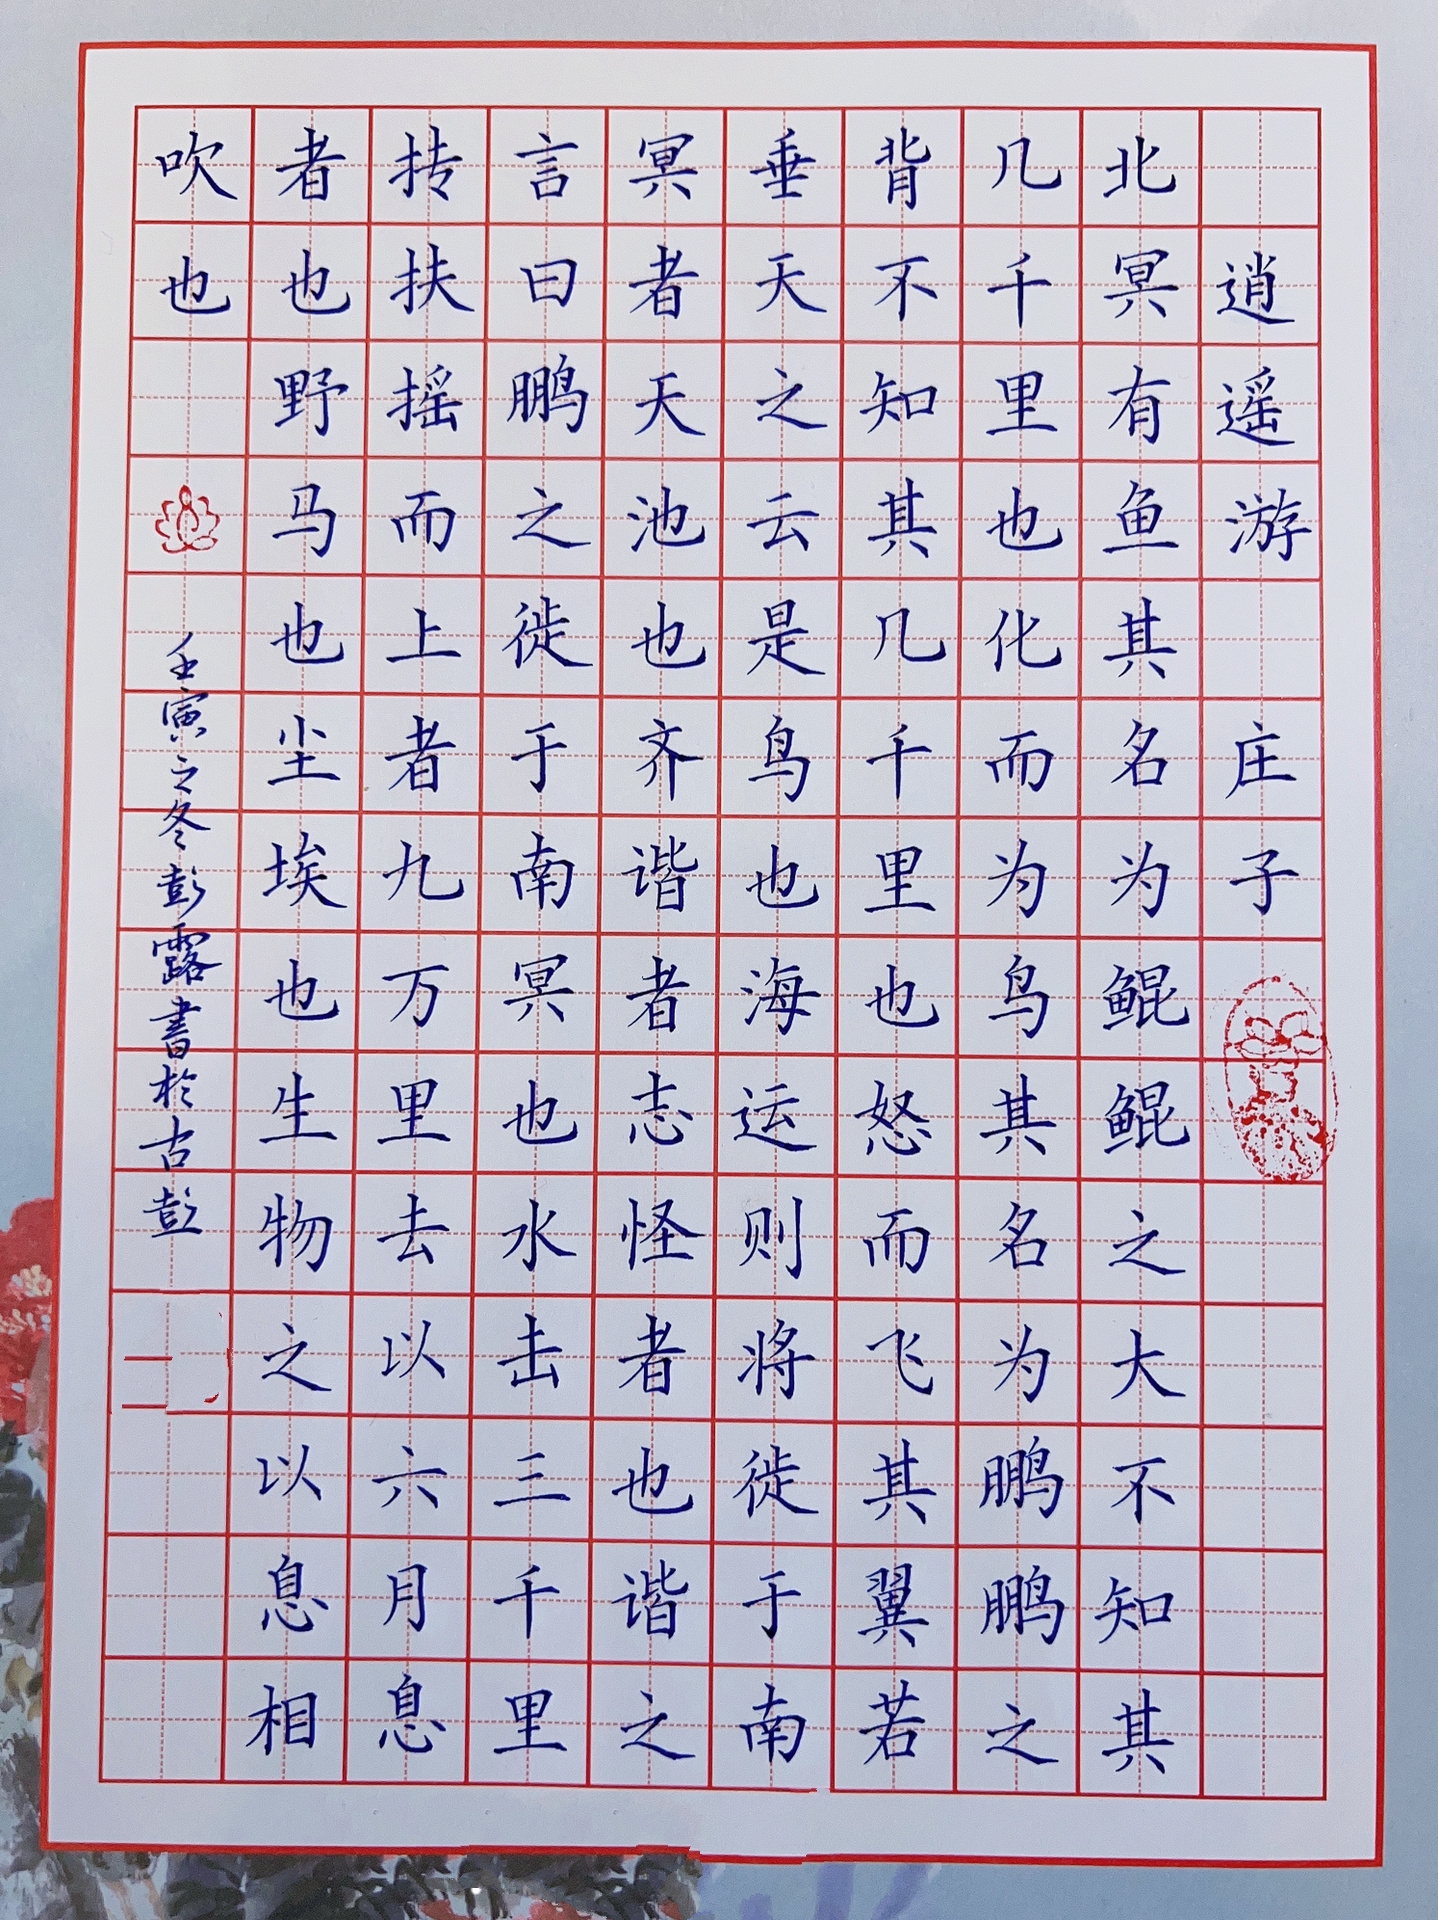 逍遥游 庄子
北冥有鱼其名为鲲鲲之大不知其
几千里也化而为鸟其名为鹏鹏之
背不知其几千里也怒而飞其翼若
垂天之云是鸟也海运则将徙于南
冥者天池也齐谐者志怪者也谐之
言曰鹏之徙于南冥也水击三千里
抟扶摇而上者九万里去以六月息
者也野马也尘埃也生物之以息相
吹也
壬寅之冬彭露書於古彭